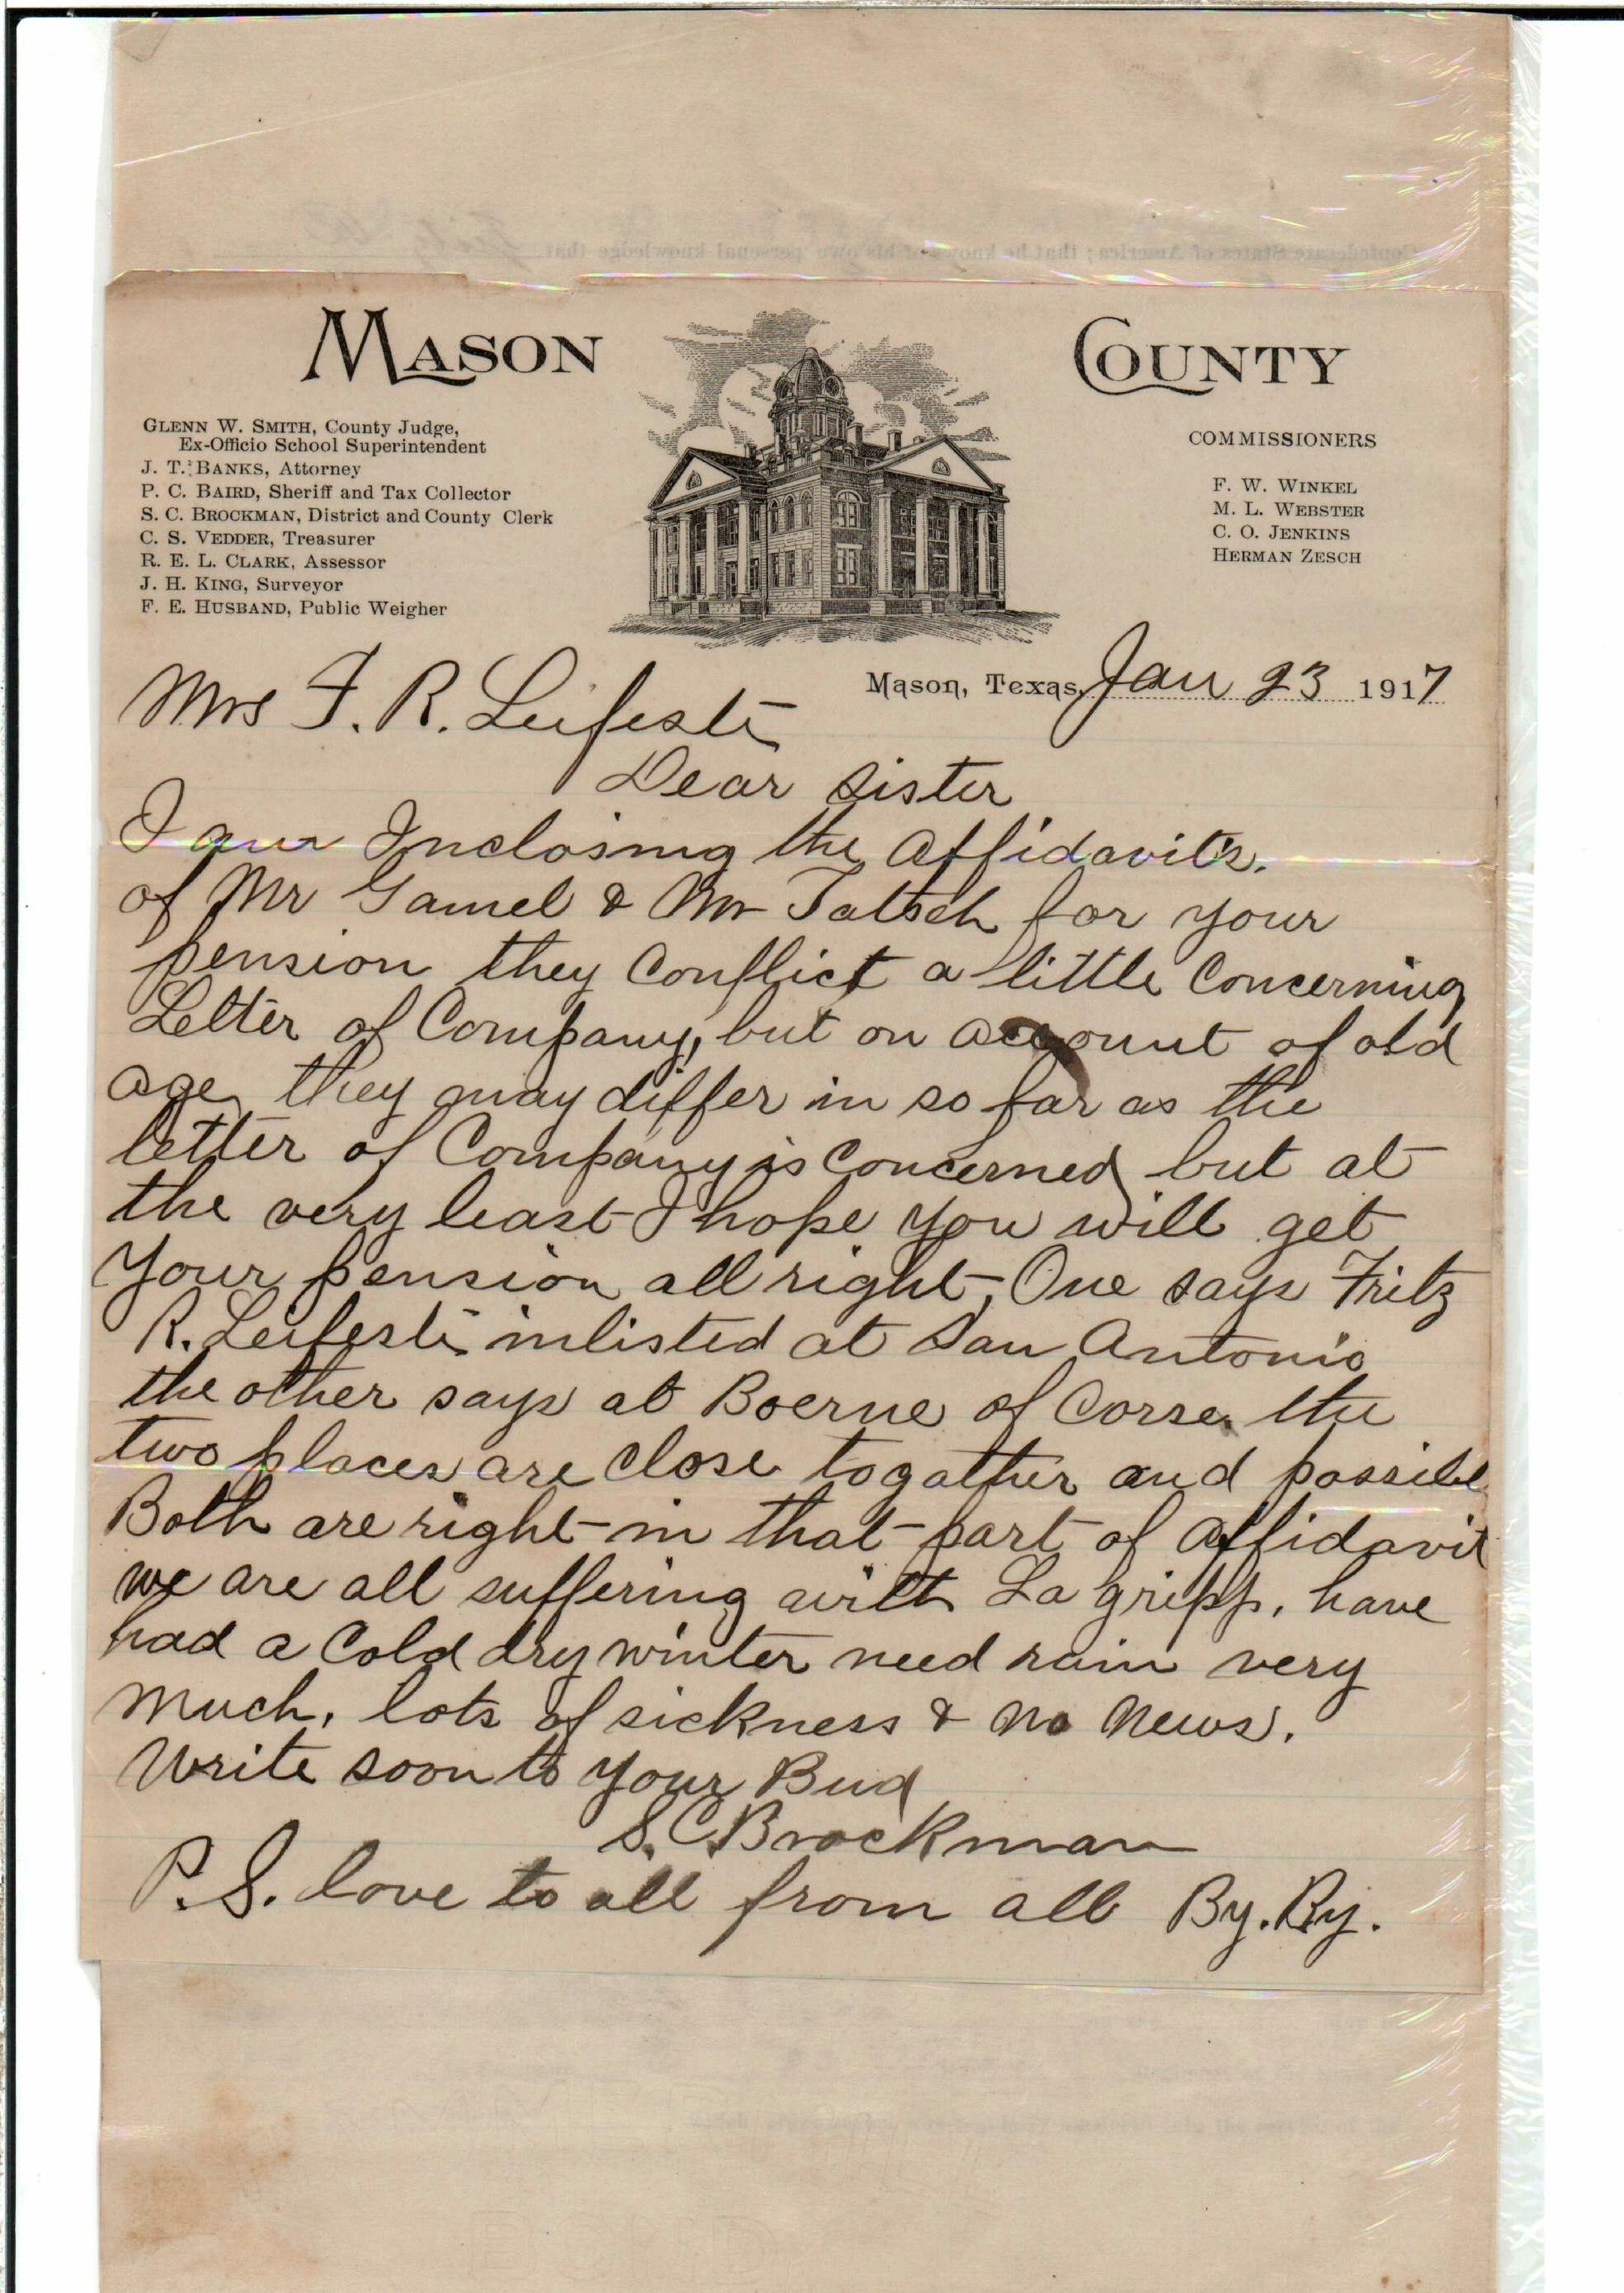 Confederate States of America; that he knows of his own personal knowledge that
MASON COUNTY
GLENN W. SMITH, County Judge,
Ex-Officio School Superintendent
J. T. BANKS, Attorney
P. C. BAIRD, Sheriff and Tax Collector
S. C. BROCKMAN, District and County Clerk
C. S. VEDDER, Treasurer
R. E. L. CLARK, Assessor
J. H. KING, Surveyor
F. E. HUSBAND, Public Weigher
COMMISSIONERS
F. W. WINKEL
M. L. WEBSTER
C. O. JENKINS
HERMAN ZESCH
Mason, Texas, Jan 23 1917
Mrs F. R. Leifeste
Dear Sister
I am Inclosing the Affidavits.
of Mr Gamel & Mr Tatsch for your
pension they Conflict a little Concerning
Letter of Company, but on account of old
age they may differ in so far as the
letter of Company is Concerned but at
the very least I hope you will get
Your pension all right, One says Fritz
R. Leifeste inlisted at San Antonio
the other says at Boerne of Corse the
two places are close togather and possibl
Both are right in that part of Affidavit
we are all suffering with La gripp, have
had a Cold dry winter need rain very
Much, lots of sickness & no News.
Write soon to your Bud
S. C. Brockman
P.S. love to all from all By. By.